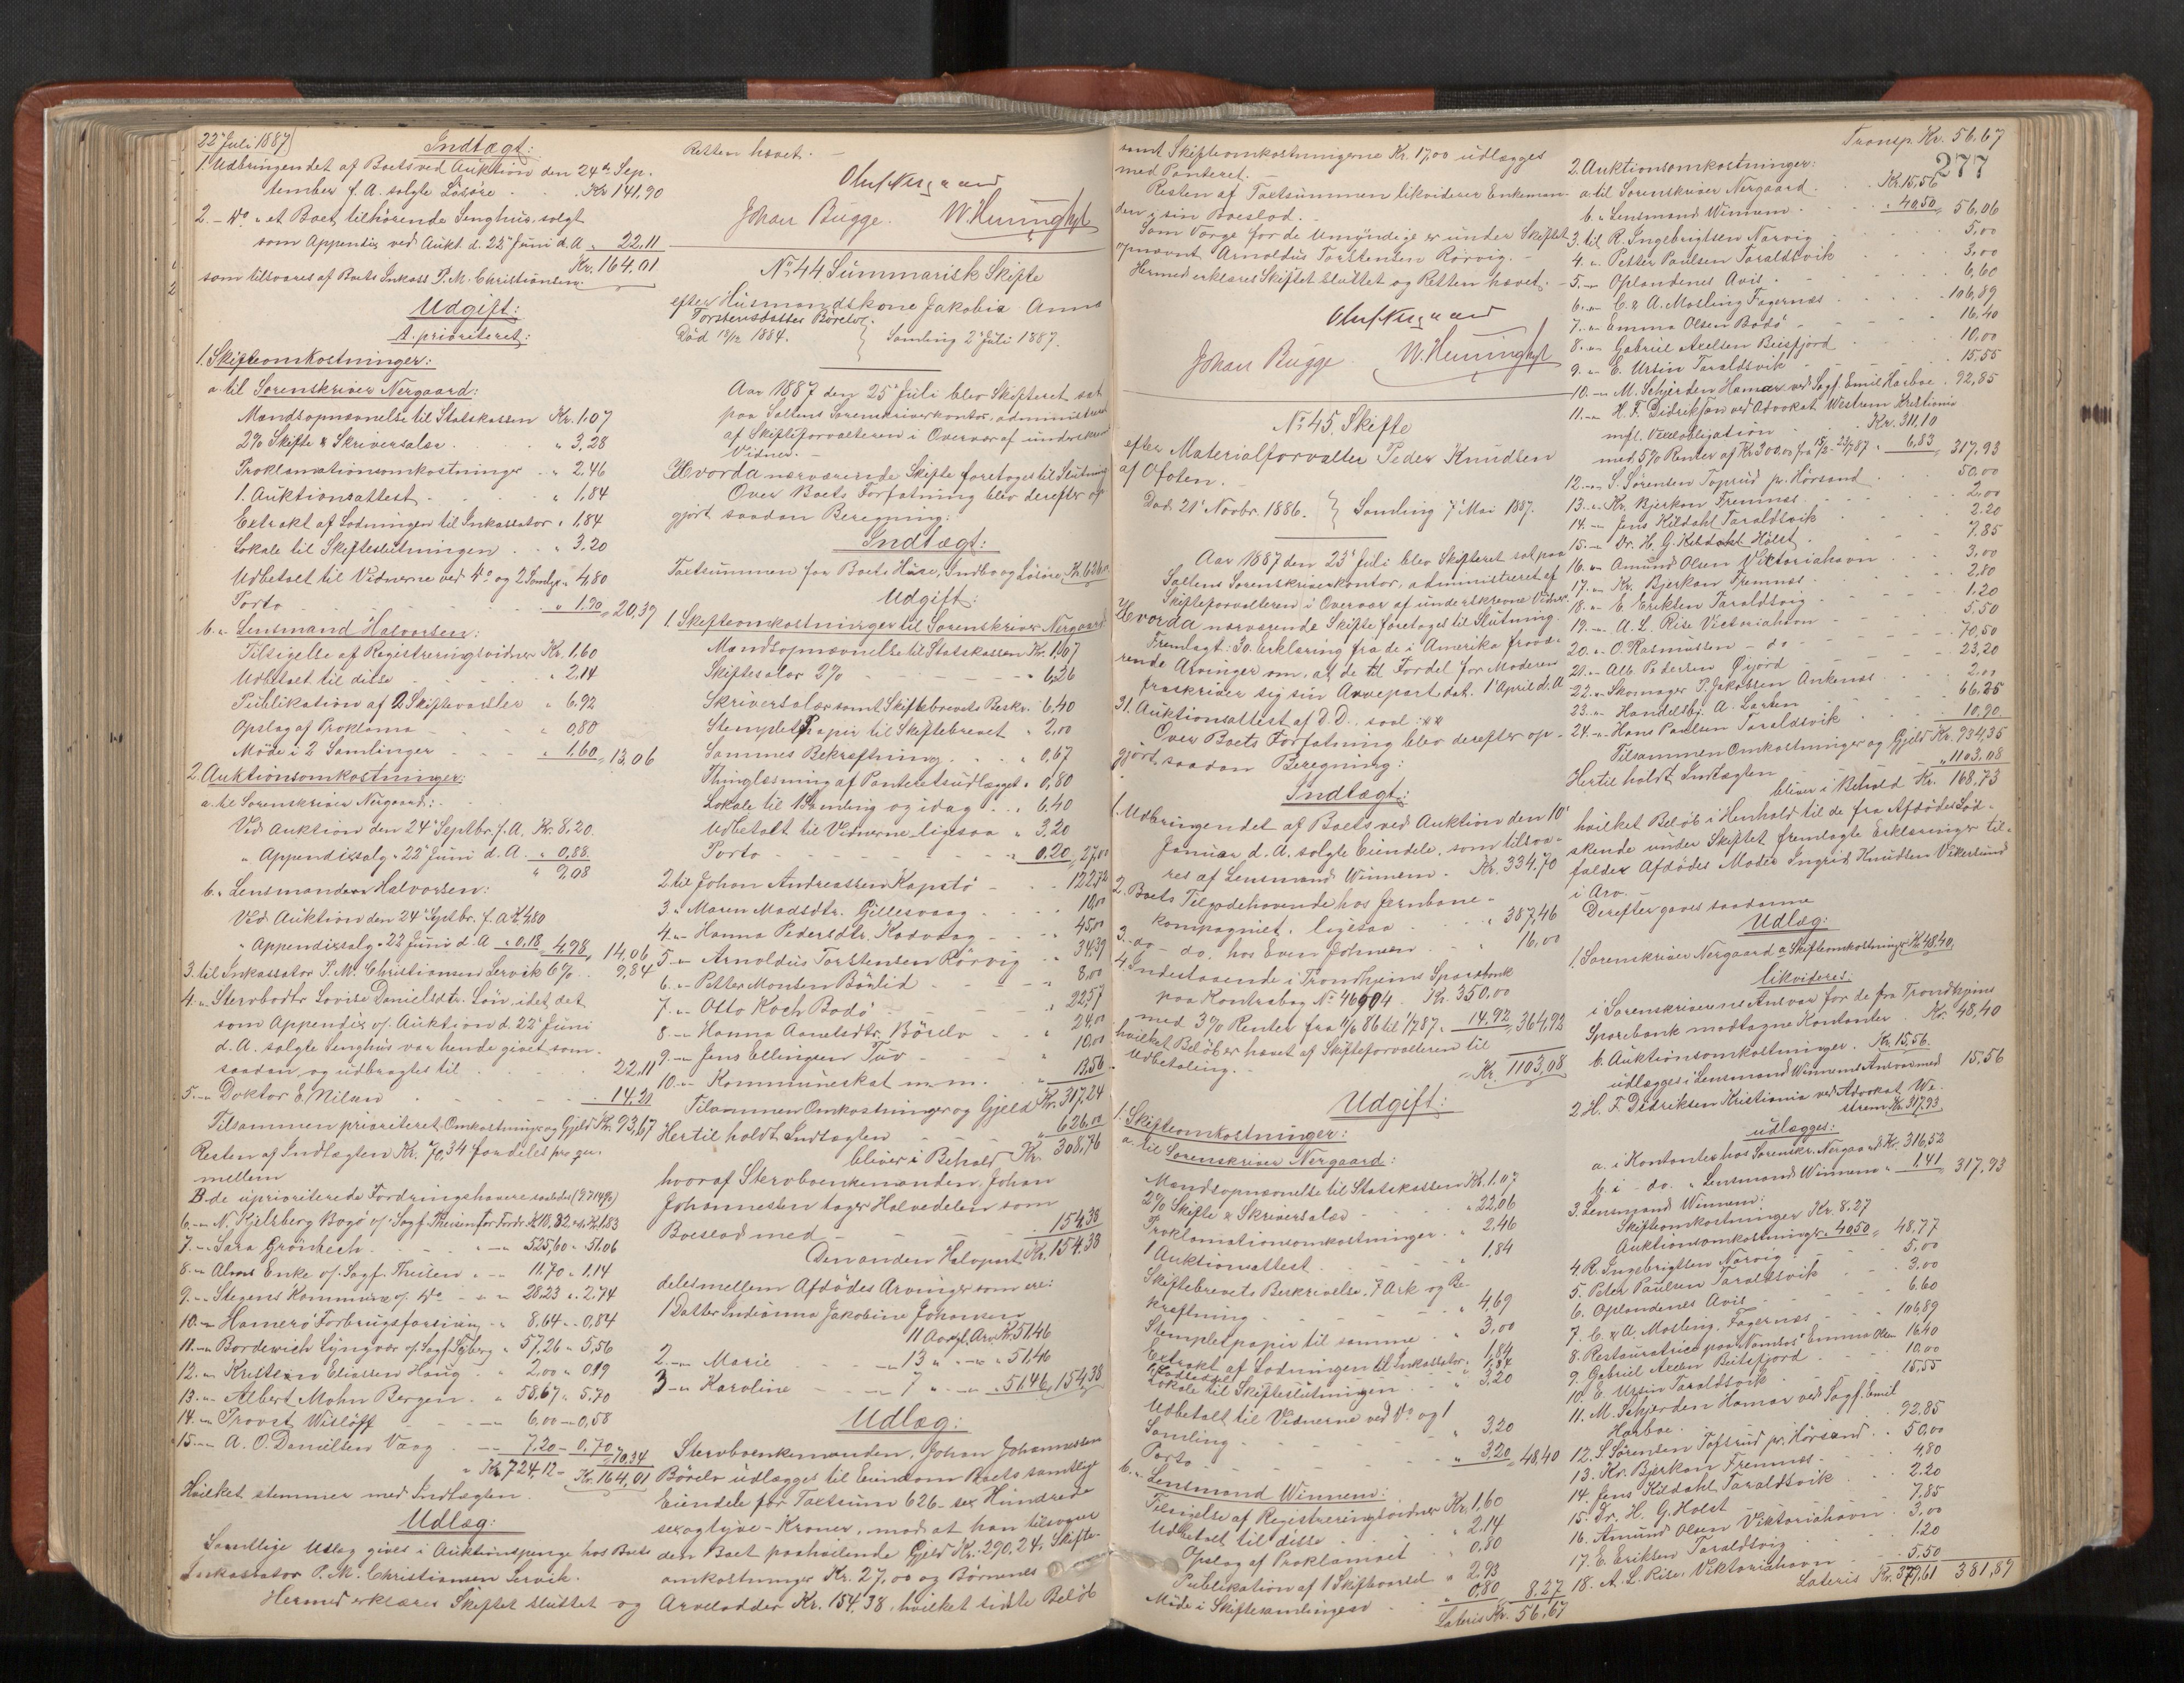 22' Juli 1887)
Indtægt:
1. Udbringendet af Boets ved Auktion den 24de Sep-
tember f. A. solgte Løsøre . . Kr 141,90
2. - Do. " et Boet tilhørende Senghus, solgt
som Appendix ved Aukt. d. 22' Juni d. A. " 22,11
Kr. 164,01
som tilsvares af Boets Inkass. P. M. Christiansen.
Udgift:
A. prioriteret:
1. Skifteomkostninger:
a. til Sorenskriver Nergaard:
Mandsopnævnelse til Statskassen Kr. 1,07
2% Skifte & Skriversalær . . " 3,28
Proklamationsomkostninger . " 2,46
1. Auktionsattest . . " 1,84
Extrakt af Lodningen til Inkassator " 1,84
Lokale til Skifteslutningen . . " 3,20
Udbetalt til Vidnerne ved Do og 2 Samlgr. " 4,80
Porto . . . " 1,90 = 20,39
b. " Lensmand Halvorsen:
Tilsigelse af Registreringsvidner Kr. 1,60
Udbetalt til disse . . " 2,14
Publikation af 2 Skiftevarsler " 6,92
Opslag af Proklama . . " 0,80
Møde i 2 Samlinger . . " 1,60 = 13,06
2. Auktionsomkostninger:
a. til Sorenskriver Nergaard:
Ved Auktion den 24' Septbr. f. A. Kr. 8,20
" Appendixsalg " 22' Juni d. A. " 0,88
" 9,08
b. " Lensmanden Halvorsen:
Ved Auktion den 24' Septbr. f. A. K 4,80
" Appendixsalg " 22' Juni d. A " 0,18 4,98, 14,06
3. til Inkassator P. M. Christiansen Lervik 6% . 9,84
4. " Stervbodtr. Lovise Danielsdtr. Løn, idet det
som Appendix v/ Auktion d. 22' Juni
d. A. solgte Senghus var hende givet som
saadan, og udbragtes til . . . 22,11
5. -" Doktor E. Nilsen . . . 14,21
Tilsammen prioriteret Omkostninger og Gjeld Kr. 93,67
Resten af Indtægten Kr. 70,34 fordeles pro qu.
mellem
B. de uprioriterede Fordringshavere saaledes (9,714%)
6. -" N. Kjelsberg Bogø v/ Sagf. Theisen for Fordr. K 18,82 " K 1,83
7. -" Sara Grønbech . . " -" 525,60 " 51,06
8. -" Alms Enke v/ Sagf. Theisen " -- 11,70 " 1,14
9. -" Stegens Kommune v/ Do - " " 28,23 " 2,74
10. -" Hamerø Forbrugsforening . " 8,64 " 0,84
11. -" Bordewich Lyngvær v/ Sagf. Fyberg " 57,26 " 5,56
12. " Kristian Eliassen Haug . " 2,00 " 0,19
13. -" Albert Mohn Bergen . . " 58,67 " 5,70
14. -" Provst Wisløff . . -" 6,00 - 0,58
15. -" A. O. Danielsen Vaag . -- 7,20 - 0,70 = 70,34
" Kr. 724,12 - Kr. 164,01
Hvilket stemmer med Indtægten.
Udlæg:
Samtlige Udlæg gives i Auktionspenge hos Boets
Inkassator P. M. Christiansen Lervik.
Hermed erklæres Skiftet sluttet og
Retten hævet. -
Oluf Nergaard
Johan Bugge. W. Henninghyt
No. 44. Summarisk Skifte
efter Husmandskone Jakobia Anna
Torstensdatter Børelv.
Død 13/12 1884. } Samling 2' Juli 1887.
Aar 1887 den 25' Juli blev Skifteret sat
paa Saltens Sorenskriverkontor, administreret
af Skifteforvalteren i Overvær af underskrevne
Vidner. -
Hvorda nærværende Skifte foretoges til Slutning
Over Boets Forfatning blev derefter op
gjort saadan Beregning:
Indtægt:
Taxtsummen for Boets Huse, Indbo og Løsøre, Kr. 626,00
Udgift:
1. Skifteomkostninger til Sorenskriver Nergaard
Mandsopnævnelse til Statskassen Kr. 1,07
Skiftesalær 2% . . . " 6,26
Skriversalær samt Skiftebrevets Beskr. " 6,40
Stemplet Papir til Skiftebrevet " 2,00
Sammes Bekræftning . . " 0,67
Thinglæsning af Panteretsudlægget " 0,80
Lokale til 1 Samling og idag . . " 6,40
Udbetalt til Vidnerne ligesaa " 3,20
Porto . . . " 0,20 = 27,00
2. til Johan Andreassen Kapstø - . . 122,72
3. " Maren Madsdtr. Gillesvaag . . 10,00
4. -" Hanna Pedersdtr. Kodvaag - . . 45,00
5. -" Arnoldus Torstensen Rørvig . . 34,39
6. " Petter Monsen Bødlid . . " 8,00
7. " Otto Koch Bodø . . . " 22,57
8. -" Hanna Arntsdtr. Børelv . . 24,00
9. -" Jens Ellingsen Tuv . . " 10,00
10. -" Kommuneskat m.m. . . " 13,56
Tilsammen Omkostninger og Gjeld Kr. 317,24
Hertil holdt Indtægten . . " 626,00
bliver i Behold Kr. 308,76
hvoraf Stervboenkemanden, Johan
Johannessen tager Halvedelen som
Boeslod med . . . 154,38
Den anden Halvpart Kr. 154,38
deles mellem Afdødes Arvinger som ere:
1 Datter Indianna Jakobine Johansen
11 Aar gl. Arv Kr. 51,46
2. -" Marie . . -" 13 " . -" " 51,46
3 -" Karoline . . -" 7 " . -" 51,46, 154,38
Udlæg:
Stervboenkemanden, Johan Johannessen
Børelv udlægges til Eiendom Boets samtlige
Eiendele for Taxtsum 626 - sex Hundrede
sexogtyve - Kroner, mod at han tilsvarer
den Boet paahvilende Gjeld Kr. 290,24, Skifte-
omkostninger Kr. 27,00 og Børnenes
Arvelodder Kr. 154,38, hvilket sidste Beløb
samt Skifteomkostningerne Kr. 17,00 udlægges
med Panteret. -
Resten af Taxtsummen likviderer Enkeman-
den sin Boeslod. -
Som Verge for de Umyndige er under Skiftet
opnævnt Arnoldus Torstensen Rørvig. -
Hermed erklæres Skiftet sluttet og Retten hævet. -
Oluf Nergaard
Johan Bugge W. Henninghyt
No. 45. Skifte
efter Materialforvalter Peder Knudsen
af Ofoten. -
Død 21' Novbr. 1886. } Samling 7' Mai 1887.
Aar 1887 den 23' Juli blev Skifteret sat paa
Saltens Sorenskriverkontor, administreret af
Skifteforvalteren i Overvær af underskrevne Vidner.
Hvorda nærværende Skifte foretoges til Slutning.
Fremlagt: 30. Erklæring fra de i Amerika fravæ-
rende Arvinger om, at de til Fordel for Moderen
fraskriver sig sin Arvepart, dat. 1' April d. A
31. Auktionsattest af D. D., saal :
Over Boets Forfatning blev derefter op-
gjort saadan Beregning:
Indtægt:
1. Udbringendet af Boets ved Auktion den 10'
Januar d. A. solgte Eiendele, som tilsva-
res af Lensmand Winnem . Kr. 334,70
2. Boets Tilgodehavende hos Jernbane-
kompagniet, ligesaa . . " 387,46
3. do - do. hos Even Johnsen . . " 16,00
4. Indestaaende i Trondhjems Sparebank
paa Kontrabog No 46904 . Kr. 350,00
med 3% Renter fra 11/6 86 til 1/7 87 " 14,92 = 364,92
hvilket Beløb er hævet af Skifteforvalteren til
Udbetaling. - Kr. 1103,08
Udgift:
1. Skifteomkostninger:
a. til Sorenskriver Nergaard:
Mandsopnævnelse til Statskassen Kr. 1,07
2% Skifte & Skriversalær - . " 22,06
Proklamationsomkostninger . " 2,46
1 Auktionsattest . . " 1,84
Skiftebrevets Beskrivelse, 7 Ark og Be-
kræftning . . . " 4,69
Stempletpapir til samme . " 3,00
Extrakt af Lodningen til Inkassator " 1,84
Lokale til Skifteslutningen . . " 3,20
Udbetalt til Vidnerne ved Do og 1
Samling . . . " 3,20
Porto . . . " 3,20 = 48,40
b. " Lensmand Winnem:
Tilsigelse af Registreringsvidner Kr. 1,60
Udbetalt til disse . . " 2,14
Opslag af Proklamaet . . " 0,80
Publikation af 1 Skiftevarsel " 2,93
Møde i Skiftesamlingen . . " 0,80 = 8,27
Lateris Kr. 56,67
Transp. Kr. 56,67
277
2. Auktionsomkostninger:
a. til Sorenskriver Nergaard . . Kr. 15,56
b. " Lensmand Winnem . . " 40,50 = 56,06
3. til R. Ingebrigtsen Narvig . . 5,00
4. " Petter Paulsen Taraldsvik . . 3,00
5. -" Oplandenes Avis . . . 6,60
6. -" C. & A. Mosling Fagernæs . . 106,89
7. -" Emma Olsen Bodø - . . 16,40
8. -" Gabriel Axelsen Beisfjord . . 10,00
9. " E. Ursin Taraldsvik - . . 15,55
10. -" M. Schjerden Hamar ved Sagf. Emil Harboe . 92,85
11. -" H. F. Didriksen ved Advokat Westrem Kristiania
mfl. Vexelobligation . Kr. 311,10
med 5% Renter af Kr. 300,00 fra 15/2 - 23/7 87 " 6,83 317,93
12. -" S. Sørensen Toprud pr. Hørsand . . 50,00
13. " Kr. Bjerkan Fremnæs . . 2,00
14. -" Jens Kildahl Taraldsvik . . 2,20
15. -" Dr. H. G. Holst . . 7,85
16. -" Amund Olsen Viktoriahavn . . 3,00
17. " Kr. Bjerkan Fremnæs . . 2,80
18. " E. Eriksen Taraldsvig . . 1,20
19. -" A. L. Rise Victoriahavn . . 5,50
20. " O. Rasmussen - do - . . 70,50
21. " Alb. Pedersen Øijord . . 23,20
22. " Skomager P. Jakobsen Ankenæs . . 2,00
23. " Handelsbj. A. Larsen . . 66,25
24. " Hans Paulsen Taraldsvik . . 10,90
Tilsammen Omkostninger og Gjeld Kr. 934,35
Hertil holdt Indtægten . . " 1103,08
bliver i Behold Kr. 168,73
hvilket Beløb i Henhold til de fra Afdødes Sød-
skende under Skiftet fremlagte Erklæringer til-
falder Afdødes Moder Ingrid Knudsen Vikersund
i Arv. -
Derefter gaves saadanne
Udlæg:
1. Sorenskriver Nergaard a. Skifteomkostninger Kr 48,40,
likvideres:
i Sorenskriverens Ansvar for de fra Trondhjems
Sparebank modtagne Kontanter . Kr. 48,40
b. Auktionsomkostninger . Kr. 15,56.
udlægges i Lensmand Winnems Ansvar med 15,56
2. H. F. Didriksen Kristiania ved Advokat We-
strem Kr. 317,93
udlægges:
a. i Kontanter hos Sorenskr. Nergaard Kr. 316,52
b. i - do. " Lensmand Winnem " 1,41 = 317,93
3. Lensmand Winnem:
Skifteomkostninger Kr. 8,27
Auktionsomkostninger " 40,50 = 48,77
4. R. Ingebrigtsen Narvig . . 5,00
5. Peter Paulsen Taraldsvik . . 3,00
6. Oplandenes Avis . . 6,60
7. C. & A. Mosling, Fagernæs - . . 106,89
8. Restauratrice paa "Namsos" Emma Olsen 16,40
9. Gabriel Axelsen Beisfjord . . 10,00
10. E. Ursin Taraldsvik . . 15,55
11. M. Schjerden Hamar ved Sagf. Emil
Harboe . . . 92,85
12. S. Sørensen Toftrud pr. Hørsand . . 50,00
13. Kr. Bjerkan Fremnæs . . 4,80
14. Jens Kildahl Taraldsvik . . 2,20
15. Dr. H. G. Holst . . 7,85
16. Amund Olsen Viktoriahavn . 3,00
17. E. Eriksen Taraldsvig . . 1,20
18. A. L. Rise, Viktoriahavn . . 5,50
Lateris Kr. 379,61 381,89